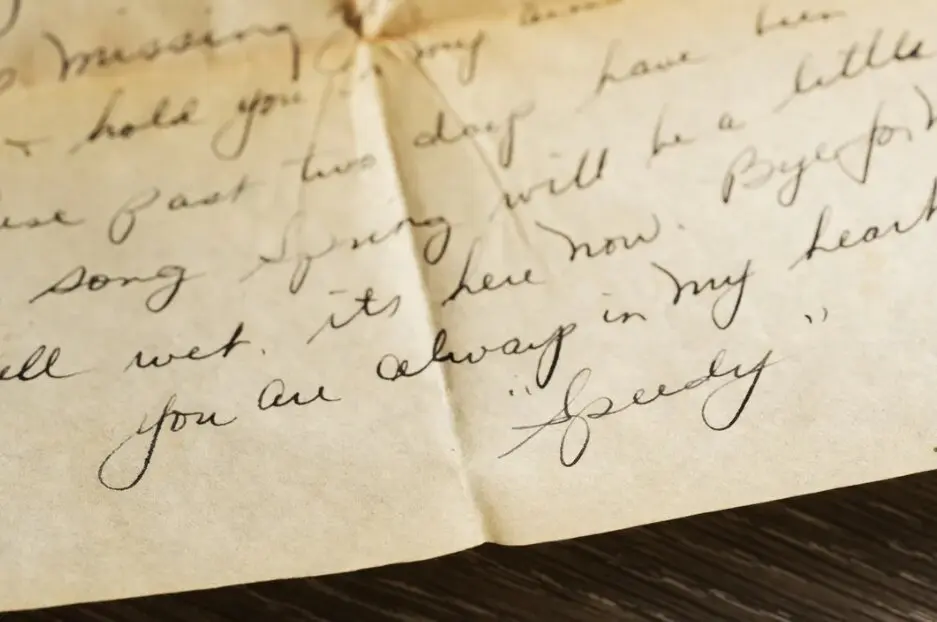 missing
hold you in my arms
past two days have been
song Spring will be a little
all wet. its here now. Bye for
you are always in my heart
"Speedy"